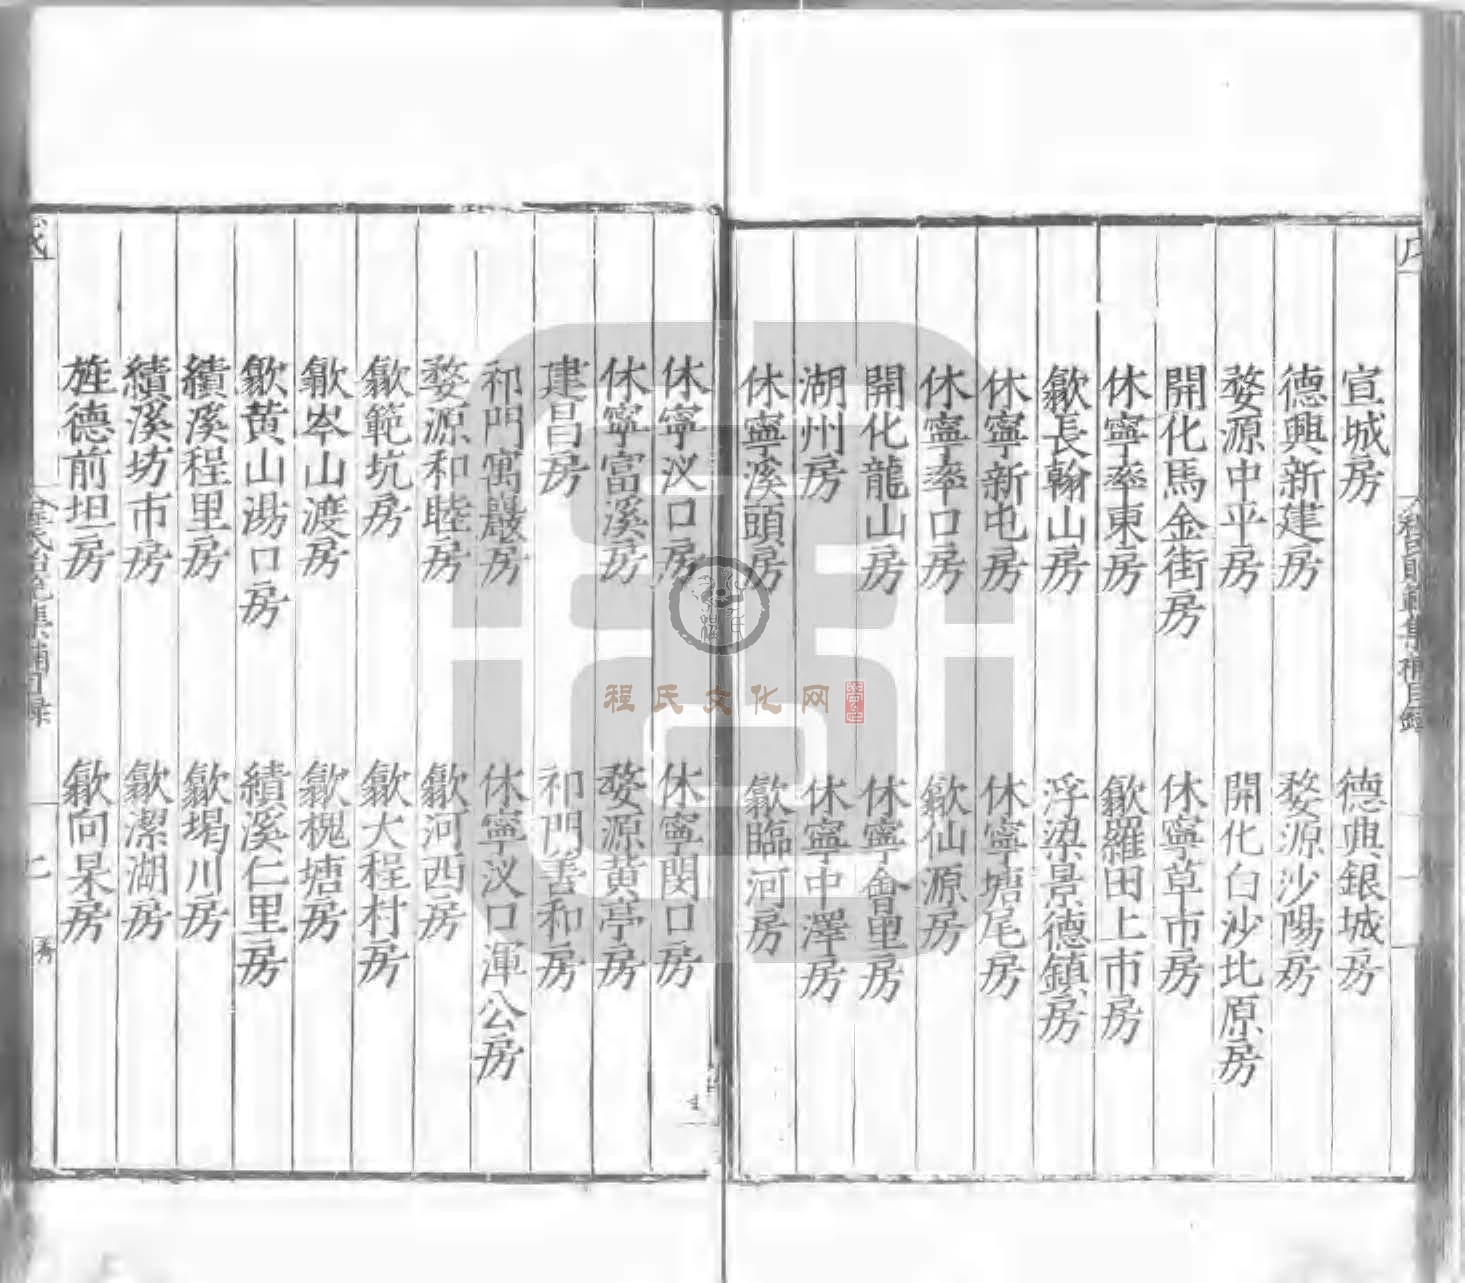 宣城房
德興銀城房
德興新建房
婺源沙陽房
婺源中平房
開化白沙北原房
開化馬金街房
休寧草市房
休寧率東房
歙羅田上市房
歙長翰山房
浮梁景德鎮房
休寧新屯房
休寧塘尾房
休寧率口房
歙仙源房
開化龍山房
休寧會里房
湖州房
休寧中澤房
休寧溪頭房
歙臨河房
休寧汊口房
休寧閔口房
休寧富溪房
婺源黄亭房
建昌房
祁門善和房
祁門㝢巖房
休寧汊口渾公房
婺源和睦房
歙河西房
歙範坑房
歙大程村房
歙岑山渡房
歙槐塘房
歙黄山湯口房
績溪仁里房
績溪程里房
歙堨川房
績溪坊市房
歙潔湖房
旌德前坦房
歙向杲房
程氏文化网